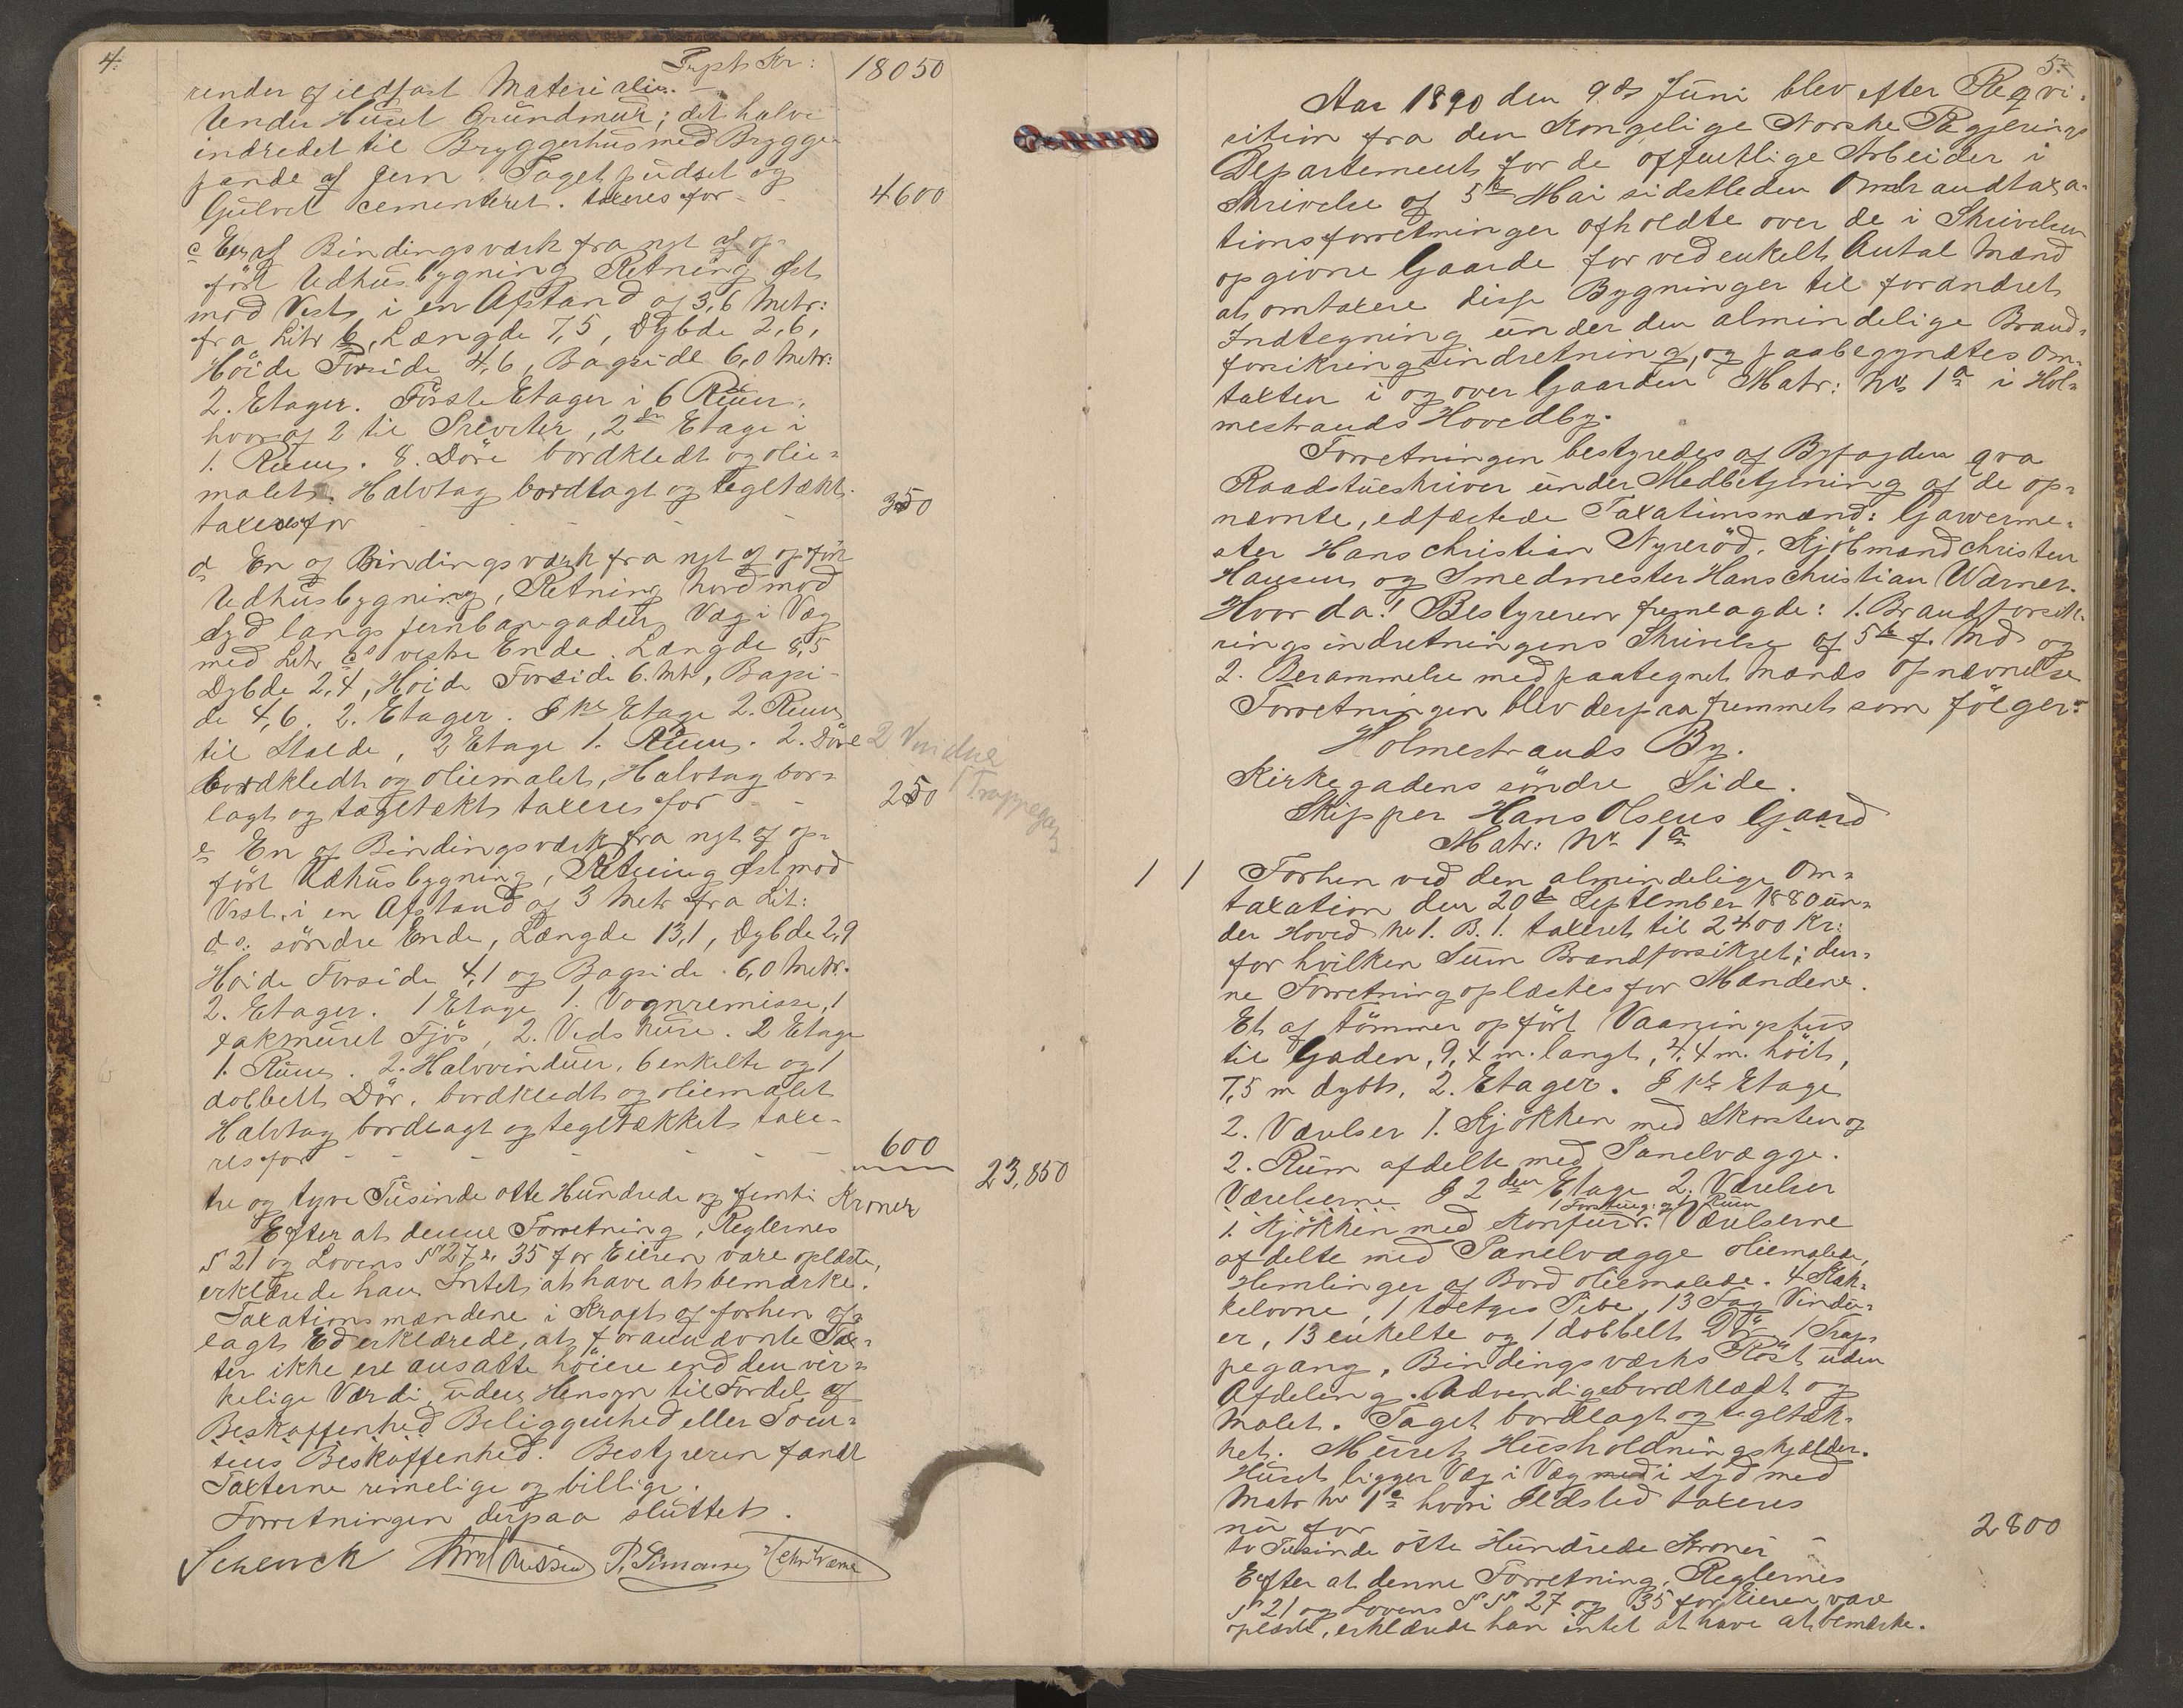 4.
Trpt Kr: 18050
render af ildfast Materialie. —
Under Huset Grundmur; det halve
indredet til Bryggerhus med Brygge-
pande af Jern. Taget pudset og
Gulvet cementeret. taxeres for - - 4600
c En af Bindingsværk fra nyt af op-
ført Udhusbygning Retning Øst
mod Vest, i en Afstand af 3,6 Metr:
fra Litr b, Længde 7,5, Dybde 2,6,
Høide Forside 4,6, Bagside 6,0 Metr:
2. Etager. Første Etager i 6 Rum,
hvoraf 2 til Priveter, 2den Etage i
1. Rum. 8. Døre bordkledt og olie-
malet. Halvtag bordtagt og tegltækt
taxeres for - - - - 350
d En af Bindingsværk fra nyt af opført
Udhusbygning, Retning Nord mod
Syd langs Jernbanegaden Væg i Væg
med Litr c's vestre Ende. Længde 8,5
Dybde 2,4, Høide Forside 6. Mt, Bagsi-
de 4,6. 2. Etager. I 1ste Etage 2. Rum
til Stalde, 2 Etage 1. Rum. 2. Døre 2 Vindue
bordkledt og oliemalet, Halvtag bor- 1 Trappegang
lagt og tægltækt taxeres for - - 250
e En af Bindingsværk fra nyt af op-
ført Udhusbygning, Retning Øst mod
Vest, i en Afstand af 3 Metr fra Lit:
d s. søndre Ende, Længde 13,1, Dybde 2,9
Høide Forside 4,1 og Bagside 6,0 Metr.
2. Etager. 1 Etage 1. Vognremisse, 1
Fjøs, 2. Vedskure. 2 Etage
1. Rum. 2. Halvvinduer, 6 enkelte og 1
dobbelt Dør. bordkledt og oliemalet
Halvtag bordlagt og tegltækket taxe-
res for - - - - - 600
23,850
tre og tyve Tusinde otte Hundrede og femti Kroner
Efter at denne Forretning, Reglernes
§ 21 og Lovens §§ 27 & 35 for Eieren vare oplæste,
erklærede han Intet at have at bemærke.
Taxationsmændene i Kraft af forhen af-
lagt Ed erklærede, at forannævnte Tax-
ter ikke ere ansatte høiere end den vir-
kelige Værdi, uden Hensyn til Fordel af
Beskaffenhed Beliggenhed eller Tom-
tens Beskaffenhed. Bestyreren fandt
Taxterne rimelige og billige.
Forretningen derpaa sluttet.
Schenck P. Simonsen H Chr Værner
5.
Aar 1890 den 9de Juni blev efter Reqvi-
sition fra den Kongelige Norske Regjerings
Departement for de offentlige Arbeider i
Skrivelse af 5te Mai sidstleden Ombrandtaxa-
tionsforretninger afholdte over de i Skrivelsen
opgivne Gaarde for ved enkelt Antal Mænd
at omtaxere disse Bygninger til forandret
Indtegning under den almindelige Brand-
forsikringsindretning, og paabegyndtes Om-
taxten i og over Gaarden Matr: No 1a i Hol-
mestrands Hovedby.
Forretningen bestyredes af Byfogden qva
Raadstueskriver under Medbetjening af de op-
nævnte, edfæstede Taxationsmænd: Garverme-
ster Hans Christian Nyrerød, Kjøbmand Christen
Hansen og Smedmester Hans Christian Wærner.
Hvorda! Bestyreren fremlagde: 1. Brandforsik-
ringsindretningens Skrivelse af 5te f. Md og
2. Berammelse med paategnet Mænds Opnævnelse
Forretningen blev derpaa fremmet som følger:
Holmestrands By.
Kirkegadens søndre Side.
Skipper Hans Olsens Gaard
Matr: No 1a
1 1 Forhen ved den almindelige Om-
taxation den 20de September 1880 un-
der Hoved No 1. B. 1. taxeret til 2400 Kr:
for hvilken Sum Brandforsikret; den-
ne Forretning oplæstes for Mændene.
Et af Tømmer opført Vaaningshus
til Gaden, 9,4 m. langt, 4,4 m. høit,
7,5 m dybt, 2. Etager. I 1ste Etage
2. Værelser 1. Kjøkken med Skorsten og
2. Rum afdelte med Panelvægge.
Værelserne I 2den Etage 2. Værelser
1 Forstue og 1 Rum
1. Kjøkken med Komfur. Værelserne
afdelte med Panelvægge oliemalede,
Hemlinger af Bord oliemalede. 4 Kak-
kelovne, 1 Pibe, 13 Fag Vindu-
er, 13 enkelte og 1 dobbelt Dør 1 Trap-
pegang, Bindingsværks Røst uden
Afdeling. Udvendige bordklædt og
Malet. Taget bordlagt og tegltæk-
ket. Muret Husholdningskjælder.
Huset ligger Væg i Væg med i Syd med
Matr No 1c hvori Ildsted taxeres
nu for 2800
to Tusinde otte Hundrede Kroner -
Efter at denne Forretning, Reglernes
§ 21 og Lovens §§ 27 og 35 for Eieren vare
oplæste, erklærede han intet at have at bemærke.